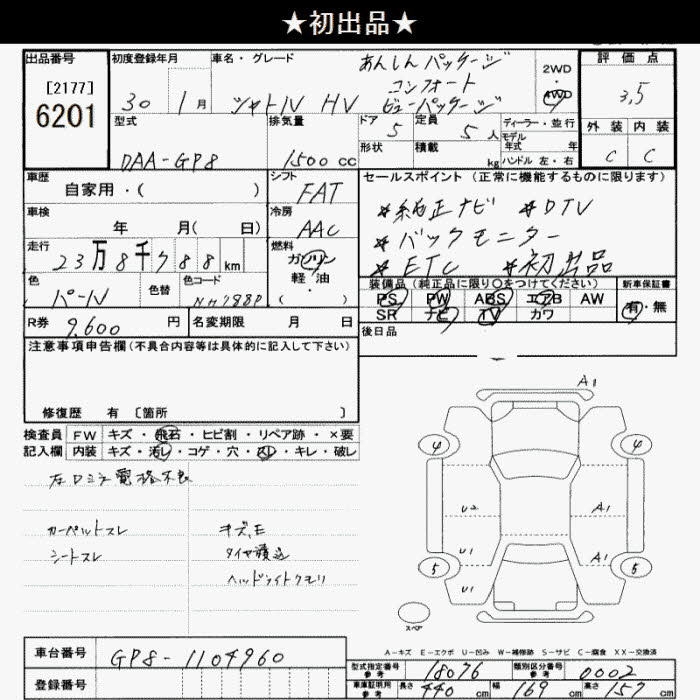 ★初出品★
出品番号
[2177]
6201
初度登録年月
30 1月
車名・グレード
シャトル HV
あんしんパッケージ
コンフォート
ビューパッケージ
2WD
4WD
評価点
3.5
外装 内装
C C
型式
DAA-GP8
排気量
1500cc
ドア
5
定員
5人
形状
積載
kg
ディーラー・並行
モデル
年式 年
ハンドル 左・右
車歴
自家用・( )
シフト
FAT
車検
年 月( 日)
冷房
AAC
走行
23万8千788km
燃料
ガソリン
軽油
( )
色
パール
色替
色コード
NH788P
R券
9,600円
名変期限 月 日
セールスポイント(正常に機能するものに限ります)
*純正ナビ *DTV
*バックモニター
*ETC *初出品
装備品(純正品に限り〇をつけてください)
PS PW ABS エアB AW
SR ナビ TV カワ
新車保証書
有・無
後日品
注意事項申告欄(不具合内容等は具体的に記入して下さい)
修復歴 有 [箇所 ]
検査員
記入欄
FW キズ・飛石・ヒビ割・リペア跡・×要
内装 キズ・汚レ・コゲ・穴・スレ・キレ・破レ
左ロミラー電格不良
カーペットスレ
シートスレ
キズ、E
タイヤ積込
ヘッドライトクモリ
A1
4 4
U2 A1
U1 A1
5 5
U1
スペア
A-キズ E-エクボ U-凹み W-補修跡 S-サビ C-腐食 XX-交換済
車台番号
GP8-1104960
登録番号
型式指定番号
参考
18076
類別区分番号
参考
0002
車庫証明用
参考
長さ 440cm 幅 169cm 高さ 157cm